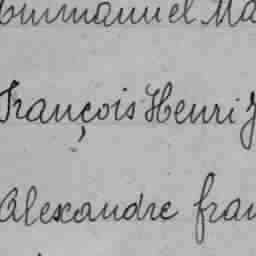 Emmanuel Ma
François Henri J
Alexandre fran